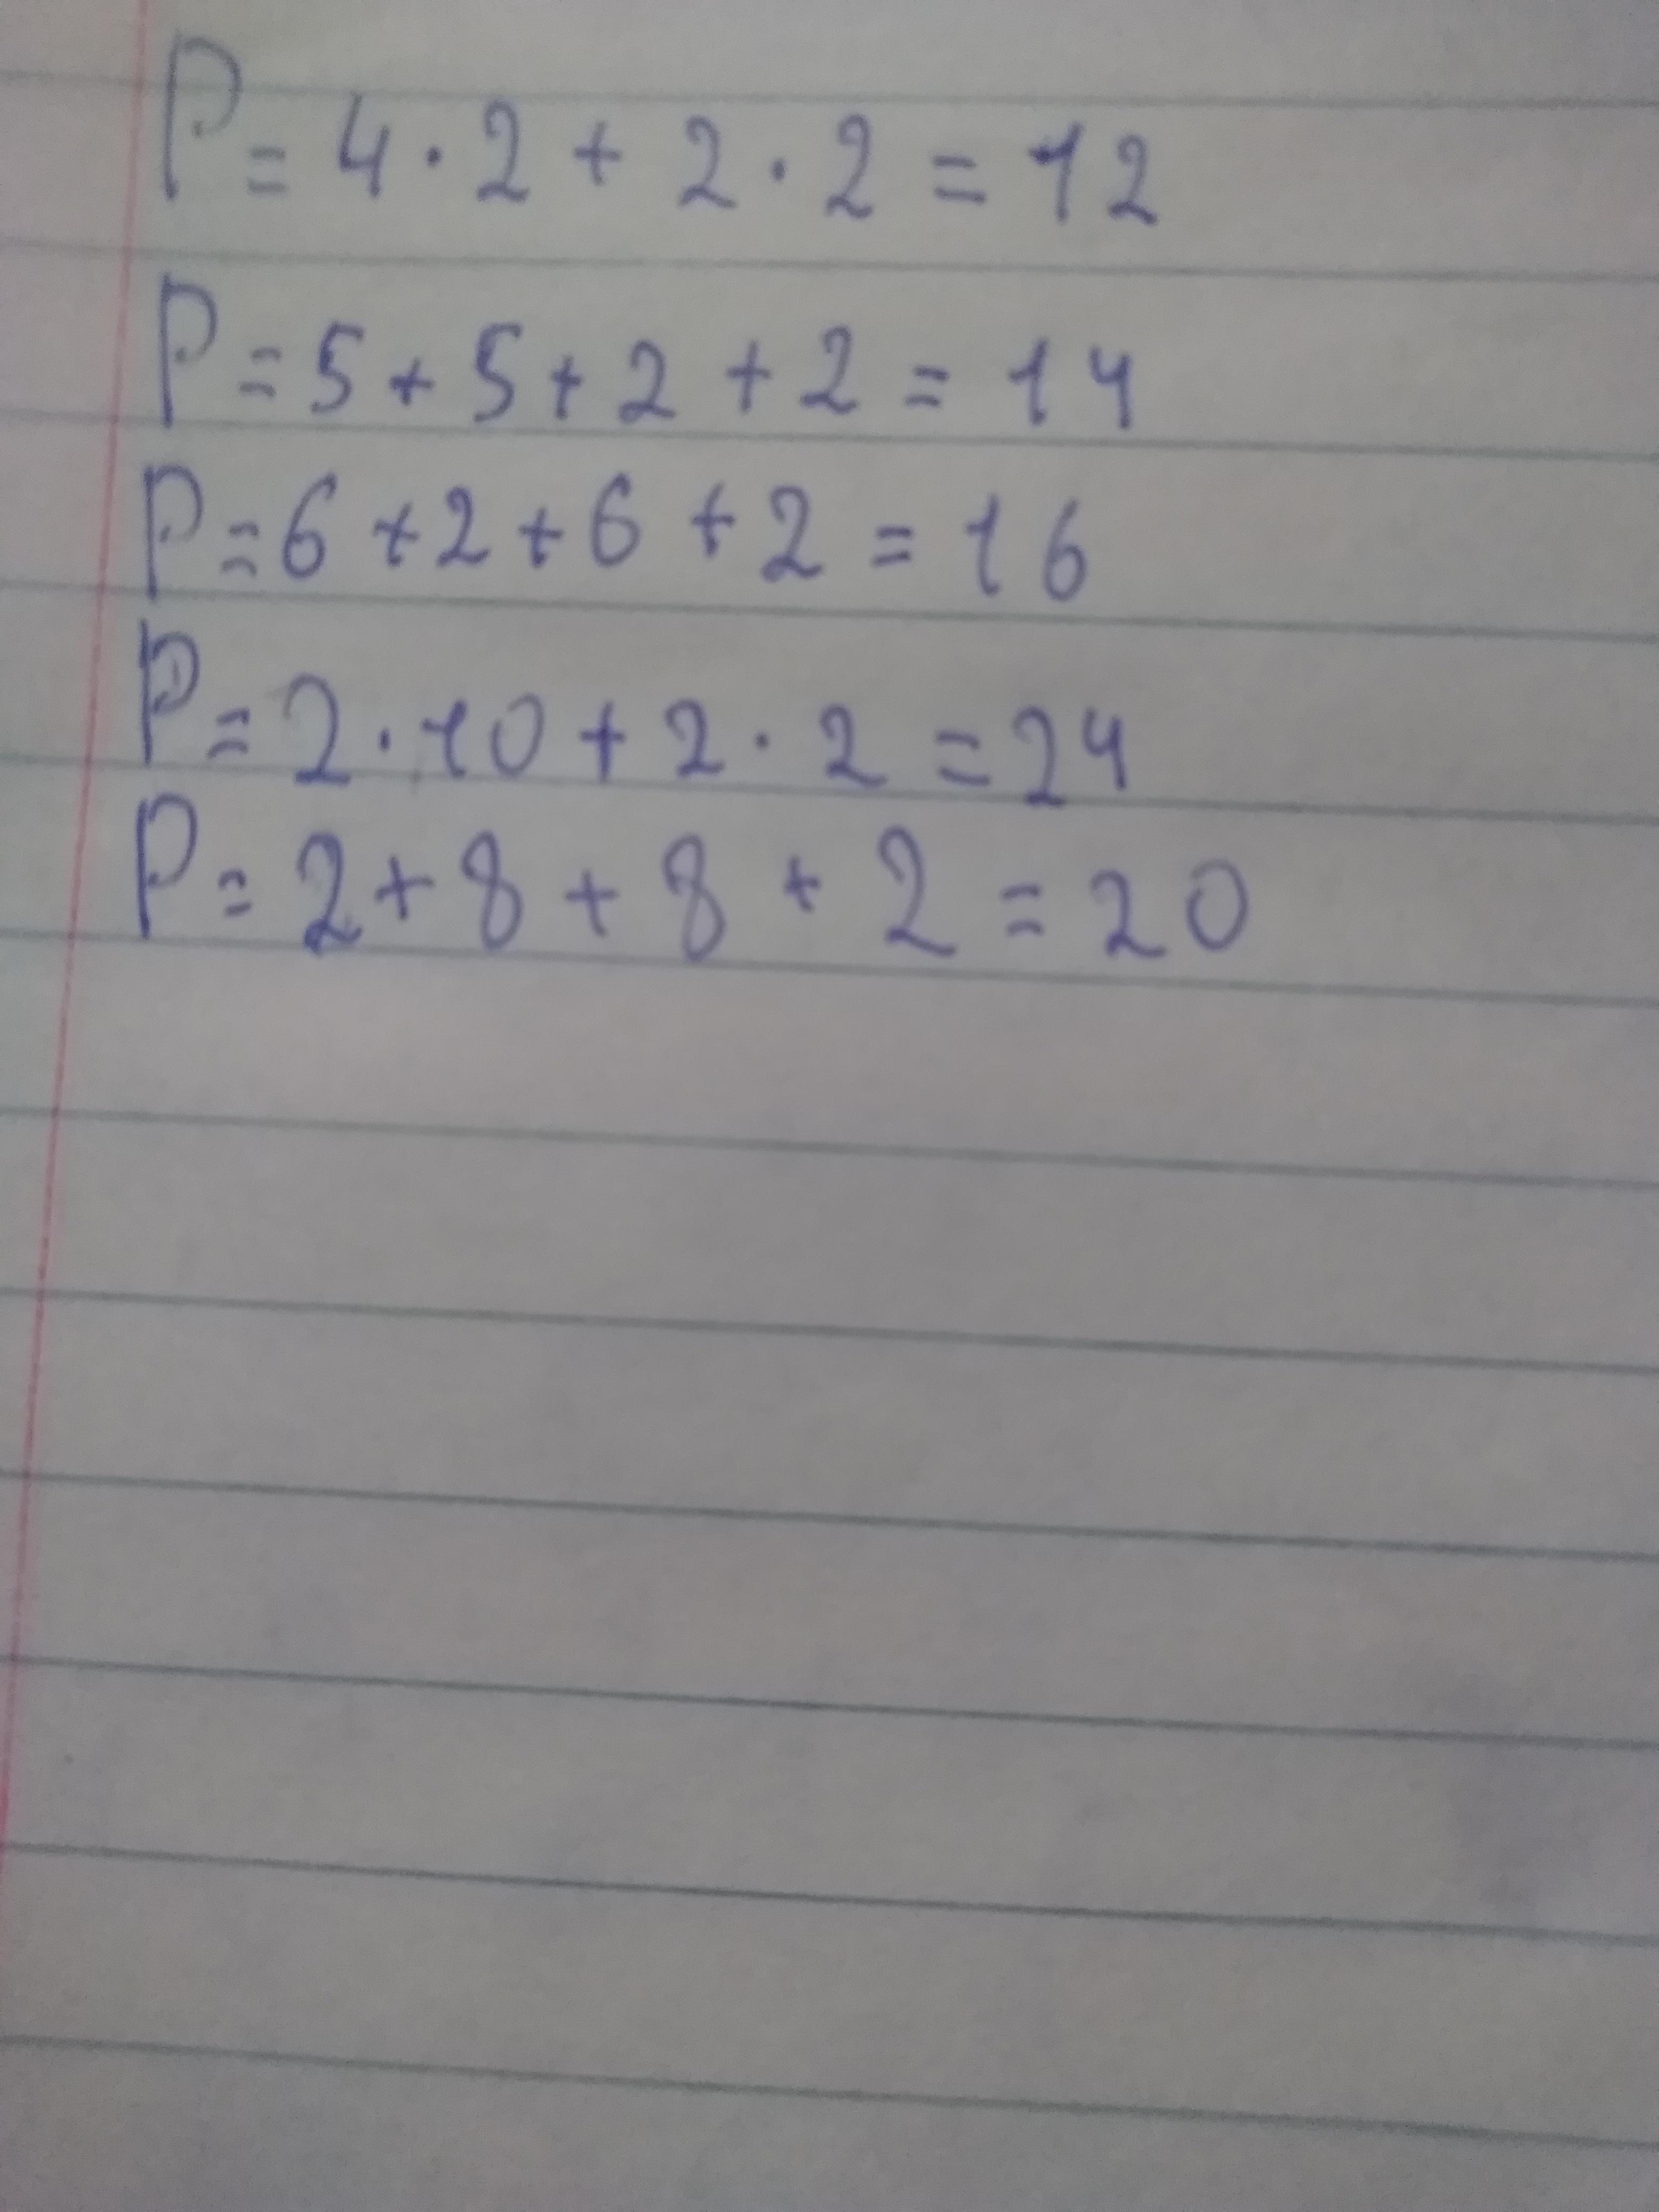 P = 4 · 2 + 2 · 2 = 12
P = 5 + 5 + 2 + 2 = 14
P = 6 + 2 + 6 + 2 = 16
P = 2 · 10 + 2 · 2 = 24
P = 2 + 8 + 8 + 2 = 20